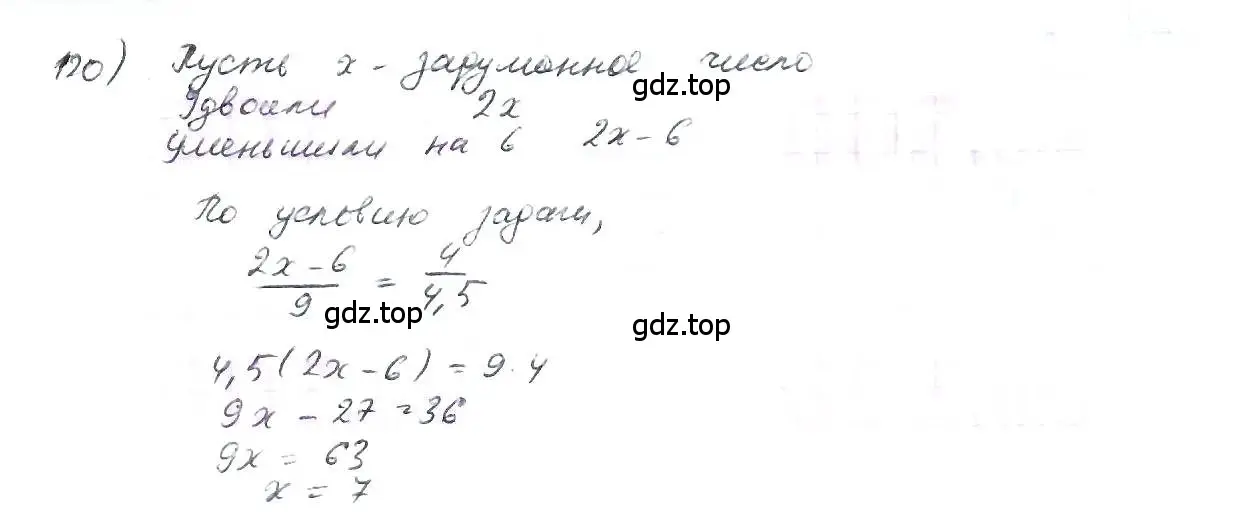 120) Пусть x - задуманное число
gdz.top
Удвоили 2x
Уменьшили на 6 2x - 6
По условию задачи,
2x - 6 / 9 = 4 / 4,5
gdz.top gdz.top
4,5(2x - 6) = 9 · 4
9x - 27 = 36
9x = 63
x = 7